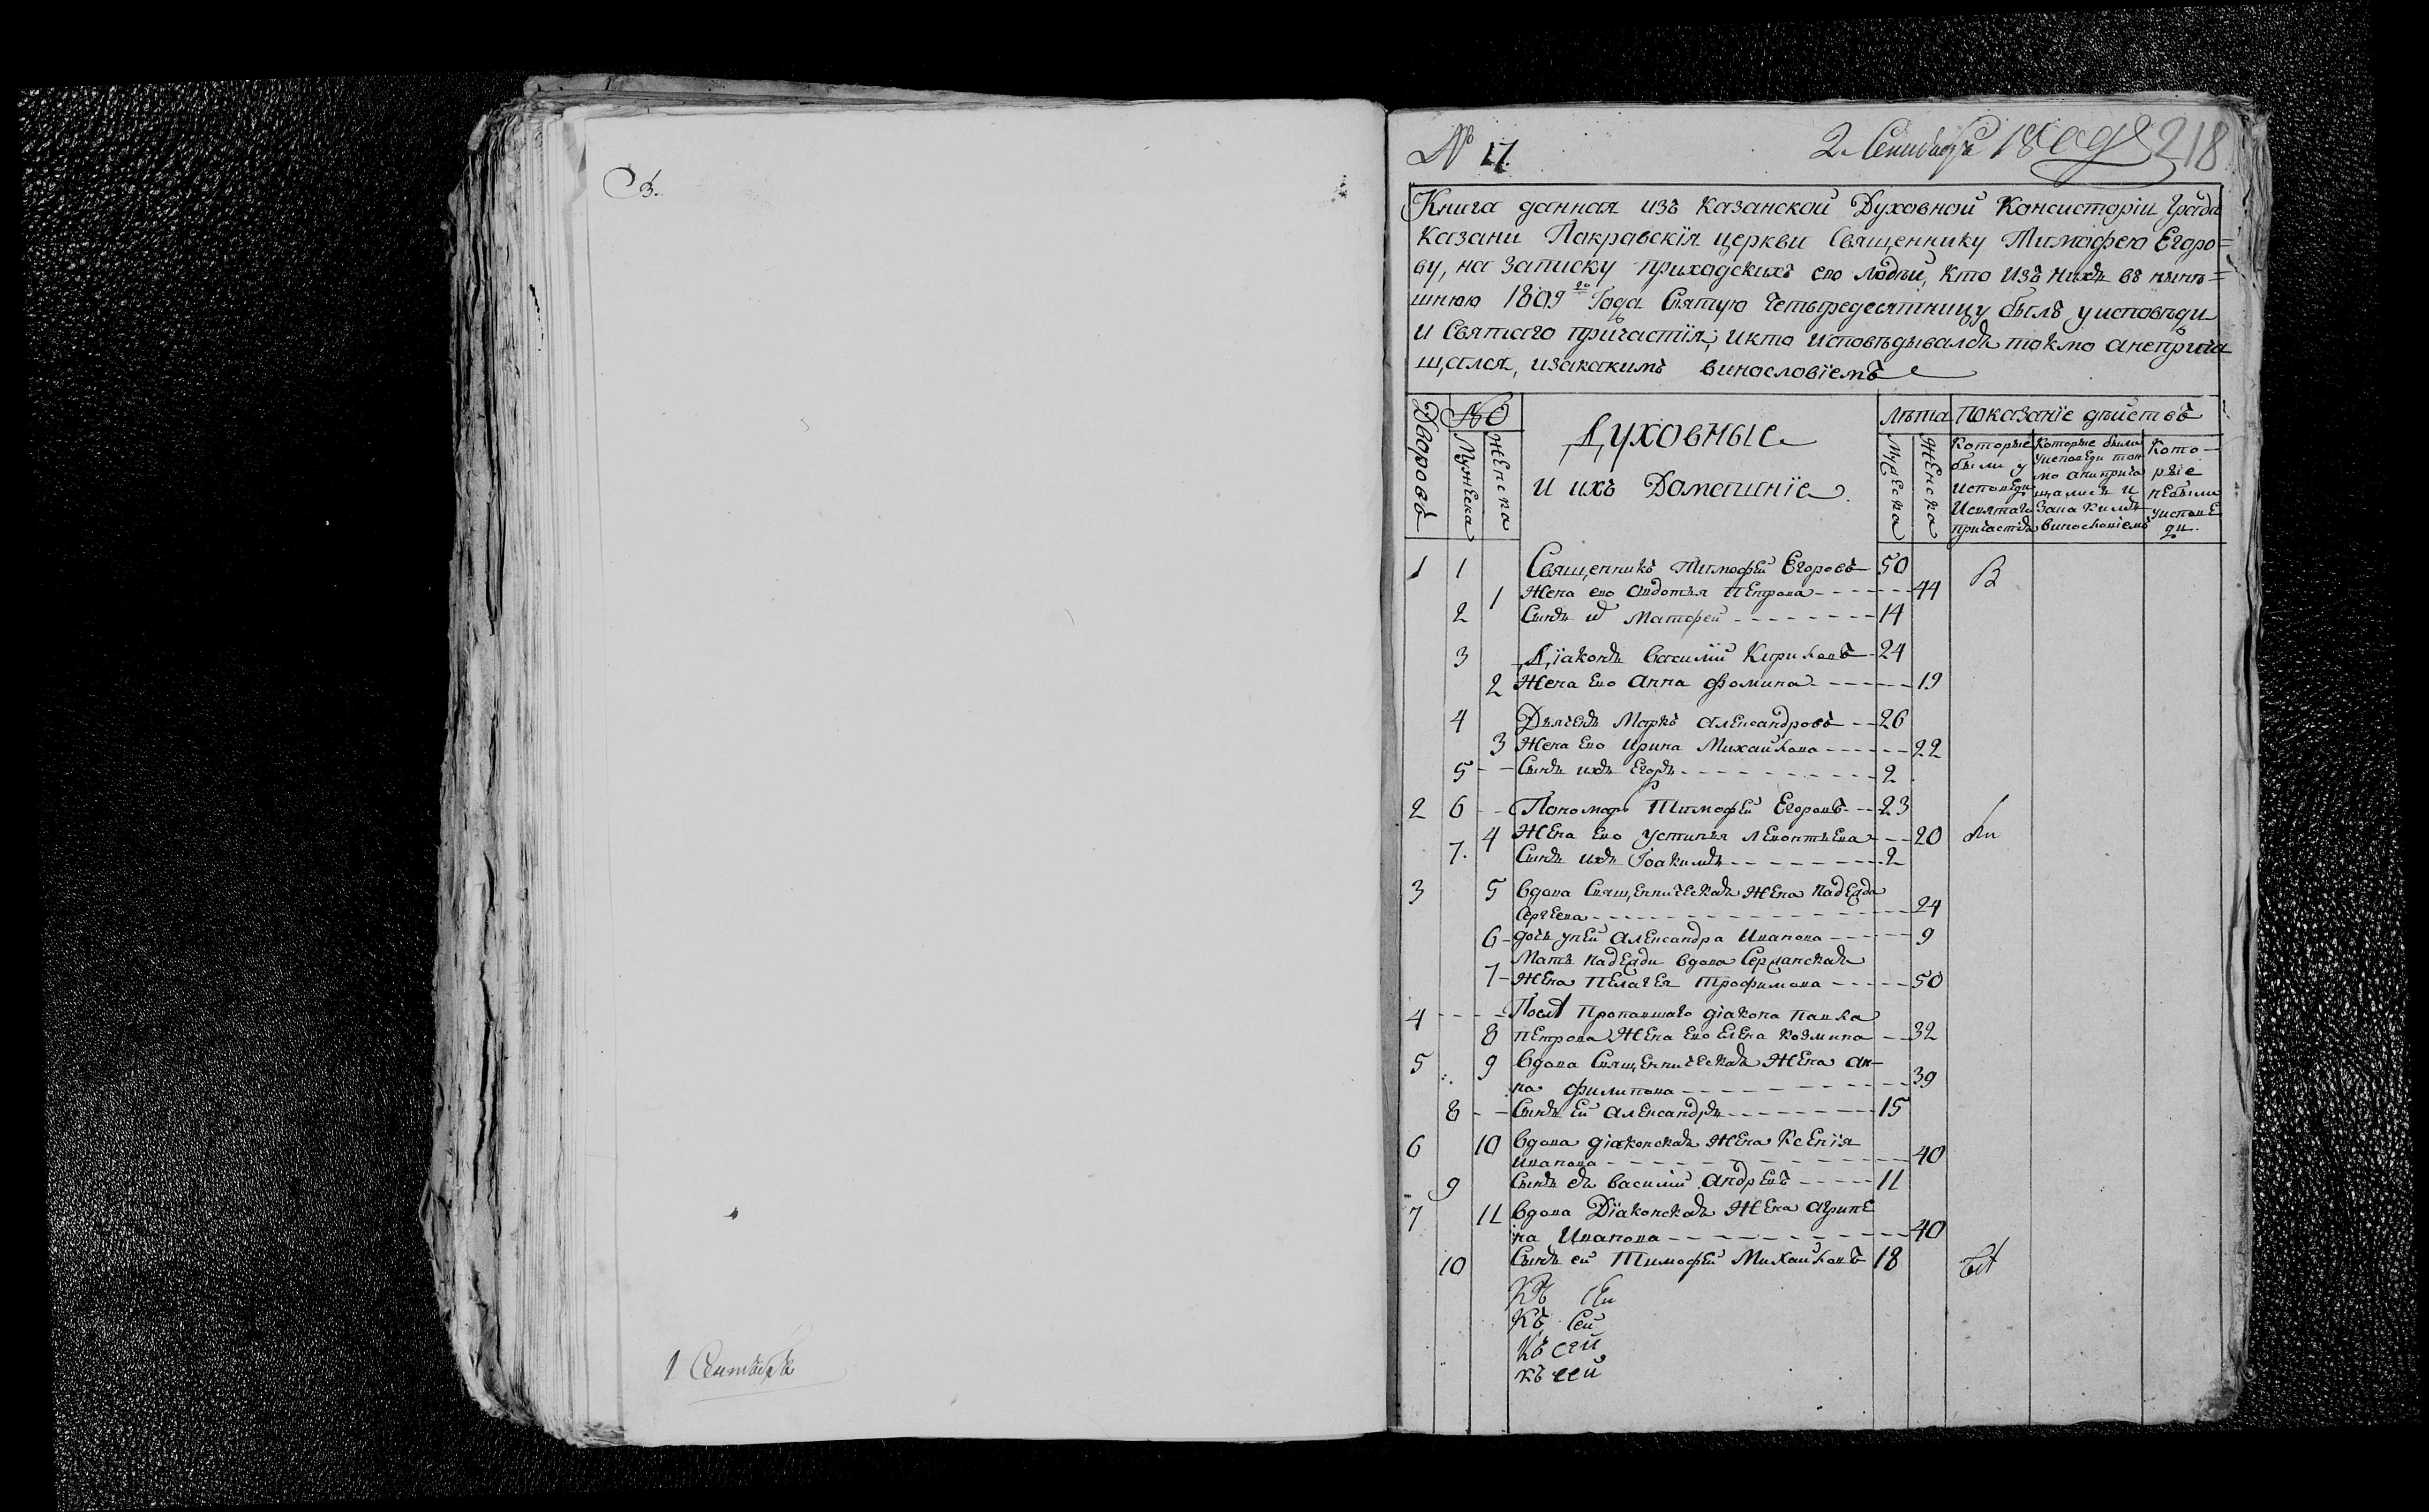 1 Сентября
№ 17.
2 Сентября 1809 218
Книга данная изъ Казанской Духовной Консисторіи града
Казани Пакравскія церкви Священнику Тимофею Егоро=
ву, на записку приходскихъ его людей, кто изъ нихъ въ нынѣ=
шнюю 1809го Года Святую Четыредесятницу былъ у исповѣди
и Святаго причастія, и кто исповѣдывался токмо а неприча
щался, и за какимъ винословіемъ
Дворовъ
№
Мужеска
Женска
Духовные
и ихъ Домашніе.
Лѣта
Мужеска
Женска
Показаніе дѣйствъ
Которые были у исповѣди и святаго причастія
Которые были у исповѣди токмо а неприча щались и за какимъ винословіемъ
Кото- рые небыли у исповѣ ди.
1 1 Священникъ Тимофей Егоровъ 50 В
1 Жена ево Авдотья Петрова 44
2 Сынъ Матфей 14
3 Діаконъ Василій Кириловъ 24
2 Жена Ево Анна Фомина 19
4 Дьячекъ Маркъ Александровъ 26
3 Жена Ево Ирина Михайлова 22
5 Сынъ ихъ Егоръ 2
2 6 Пономарь Тимофей Егоровъ 23
4 Жена Ево Устинья Леонтьева 20
7. Сынъ ихъ Іоакимъ 2
3 5 Вдова Священническая Жена Надежда
Сергеева 24
6 дочь у ней Александра Иванова 9
Мать Надежди вдова
7 Жена Пелагея Трофимова 50
4 Послѣ Пропавшаго діакона Павла
8 Петрова Жена Ево Елена Козмина 32
5 9 Вдова Священническая Жена Ан-
на Филипова 39
8 Сынъ Ей Александръ 15
6 10 Вдова діаконская Жена Ксенія
Иванова 40
9 Сынъ ея Василій Андреевъ 11
7 11 Вдова Діаконская Жена Агрипе
на Иванова 40
10 Сынъ ей Тимофей Михайловъ 18
Къ Сей
Къ Сей
Къ сей
къ сей